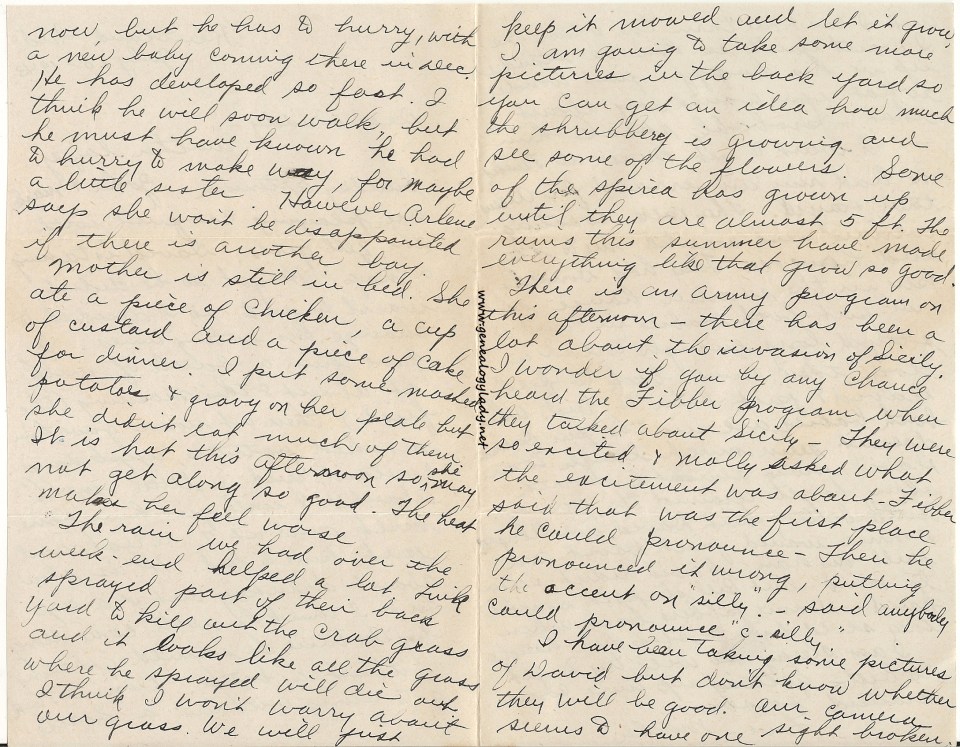 now, but he has to hurry, with
a new baby coming there in Dec.
He has developed so fast. I
think he will soon walk, but
he must have known he had
to hurry to make way, for maybe
a little sister. However Arlene
says she won't be disappointed
if there is another boy.
Mother is still in bed. She
ate a piece of chicken, a cup
of custard and a piece of cake
for dinner. I put some mashed
potatoes & gravy on her plate but
she didn't eat much of them.
It is hot this afternoon so she may
not get along so good. The heat
makes her feel worse
The rain we had over the
week-end helped a lot. Link
sprayed part of their back
yard to kill out the crab grass
and it looks like all the grass
where he sprayed will die out
I think I won't worry about
our grass. We will just
keep it mowed and let it grow.
I am going to take some more
pictures in the back yard so
you can get an idea how much
the shrubbery is growing and
see some of the flowers. Some
of the spirea has grown up
until they are almost 5 ft. The
rains this summer have made
everything like that grow so good.
There is an army program on
this afternoon - there has been a
lot about the invasion of Sicily.
I wonder if you by any chance
heard the Fibber program when
they talked about Sicily - They were
so excited & Molly asked what
the excitement was about - Fibber
said that was the first place
he could pronounce - Then he
pronounced it wrong, putting
the accent on "silly" - said anybody
could pronounce "c-silly"
I have been taking some pictures
of David but don't know whether
they will be good. Our camera
seems to have one sight broken.
www.genealogylady.net